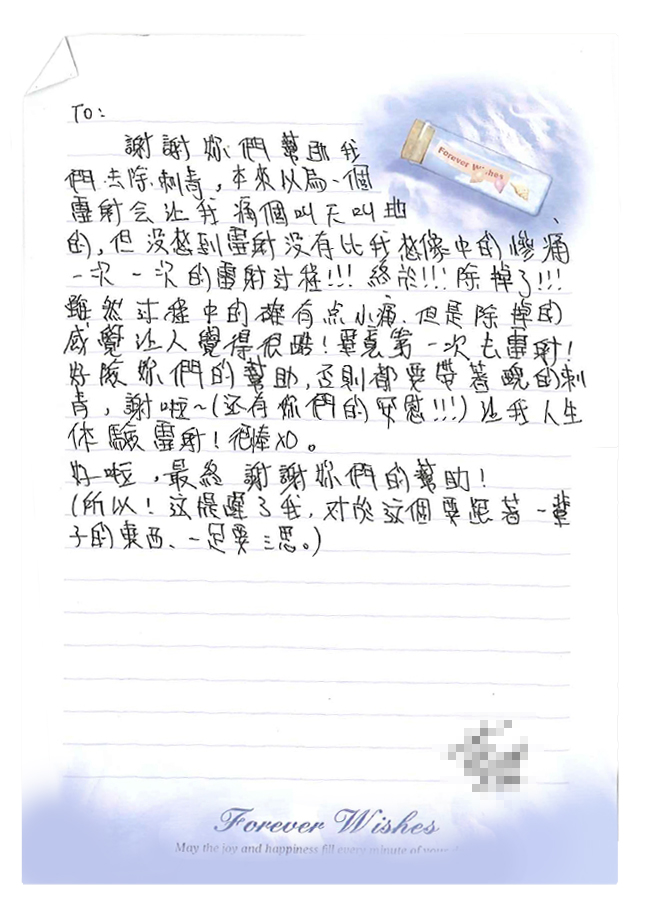 To:
謝謝妳們幫助我
Forever Wishes
們去除刺青，本來以為一個
雷射会让我痛個叫天叫地
的，但没想到雷射没有比我想像中的慘痛
一次一次的雷射过程!!! 終於!!! 除掉了!!!
雖然过程中的確有点小痛，但是除掉的
感覺让人覺得很酷！畢竟第一次去雷射！
好險妳們的幫助，否則都要帶著醜的刺
青，謝啦~(还有你們的安慰!!!) 让我人生
体驗雷射！很棒XD。
好啦，最終謝謝妳們的幫助！
(所以！这提醒了我，对於这個要跟著一輩
子的東西、一定要三思。)
Forever Wishes
May the joy and happiness fill every minute of your